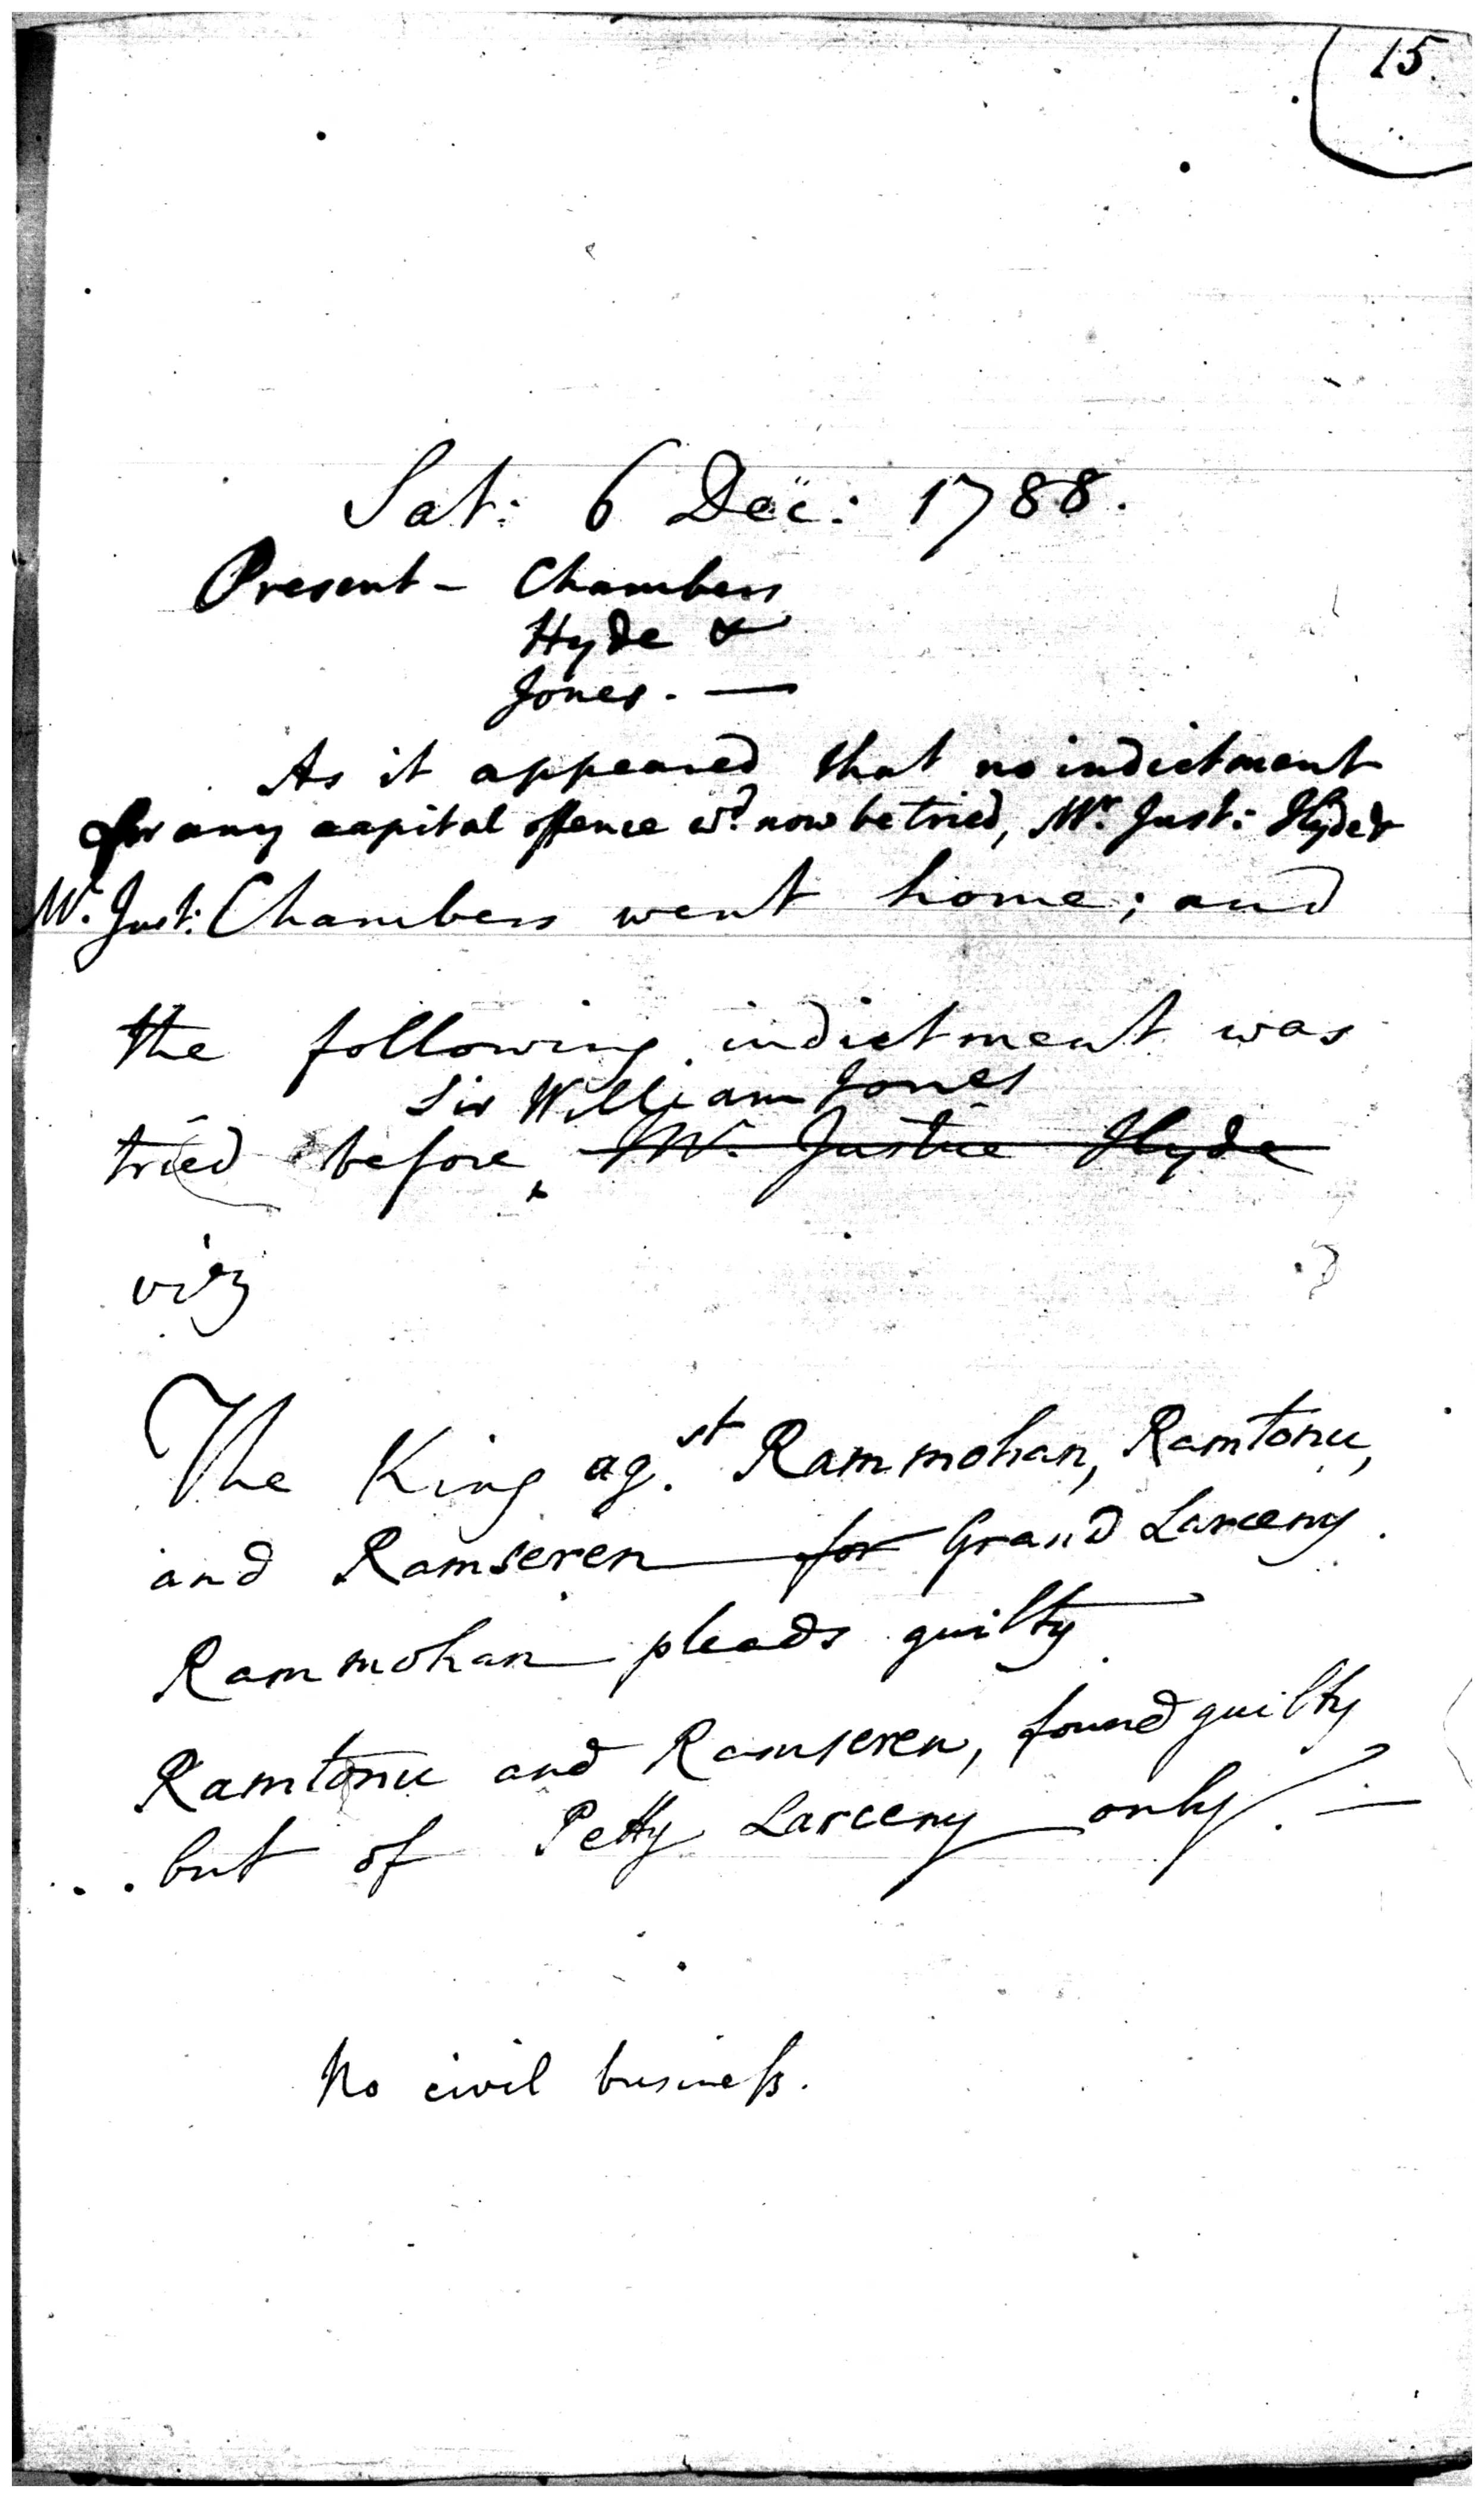 15.
Sat: 6 Dec: 1788.
Present - Chambers
Hyde &
Jones. —
As it appeared that no indictment
for any capital offence wd. now be tried, Mr. Just: Hyde &
Mr. Just: Chambers went home; and
the following indictment was
Sir William Jones
tried before ‸ Mr. Justice Hyde
viz
The King agst. Rammohan, Ramtonu,
and Ramseren for Grand Larceny.
Rammohan pleads guilty.
Ramtonu and Ramseren, found guilty
but of Petty Larceny only. —
No civil business.